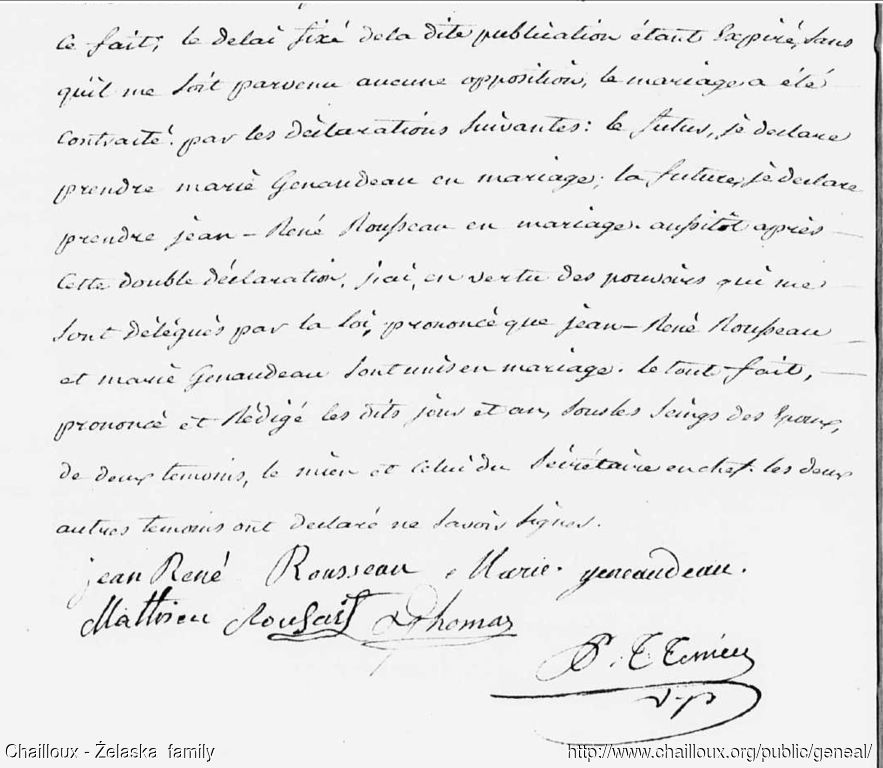 ce fait; le delai fixé dela dite publication étant Expiré, sans
qu'il me soit parvenu aucune opposition, le mariage a été
contraité par les déclarations suivantes: le futur, je declare
prendre marie Genaudeau en mariage; la future, je declare
prendre jean - René Rousseau en mariage. aussitôt après
cette double déclaration, j'ai, en vertu des pouvoirs qui me
sont délégués par la loi, prononcé que jean - René Rousseau
et marie Genaudeau sont unis en mariage. le tout fait,
prononcé et Rédigé les dits jour et an, sous les seings des Epoux,
de deux temoins, le mien et celui du Sécrétaire en chef. les deux
autres temoins ont declaré ne savoir signer.
jean René Rousseau Marie. geneaudeau.
Mathieu Thomas
P. T.
v-p
Chailloux - Żelaska family
http://www.chailloux.org/public/geneal/